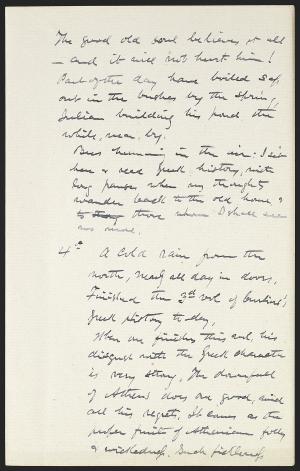 The good old soul believes it all
— and it will not hurt him!
Part of the day have boiled sap
out in the bushes by the spring,
Julian building his pond the
while, near by.
Bees humming in the air. I sit
here & read Greek history, with
long pauses when my thoughts
wander back to the old home &
to those whom I shall see
no more.
4th A cold rain from the
north, nearly all day in doors,
Finished the 3rd vol of Curtius's
Greek History to-day,
When one finishes this vol, his
disgust with the Greek character
is very strong. The downfall
of Athens does one good, amid
all his regrets, it comes as the
proper fruits of Athenian folly
& wickedness. Such fickleness,